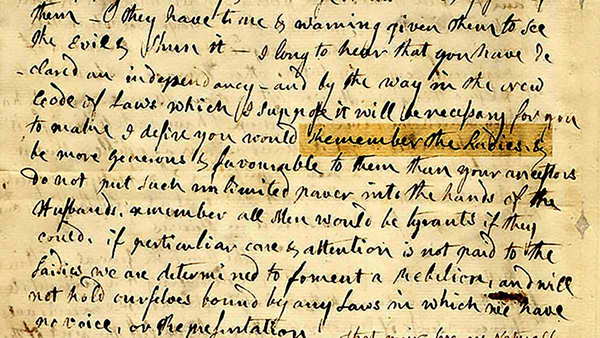 them - they have time & warning given them to see
the Evil & shun it - I long to hear that you have de
clared an independancy - and by the way in the new
Code of Laws which I suppose it will be necessary for you
to make I desire you would Remember the Ladies, &
be more generous & favourable to them than your ancestors
do not put such unlimited power into the hands of the
Husbands. remember all Men would be tyrants if they
could. if perticuliar care & attention is not paid to the
Laidies we are determined to foment a Rebelion, and will
not hold ourselves bound by any Laws in which we have
no voice, or Representation